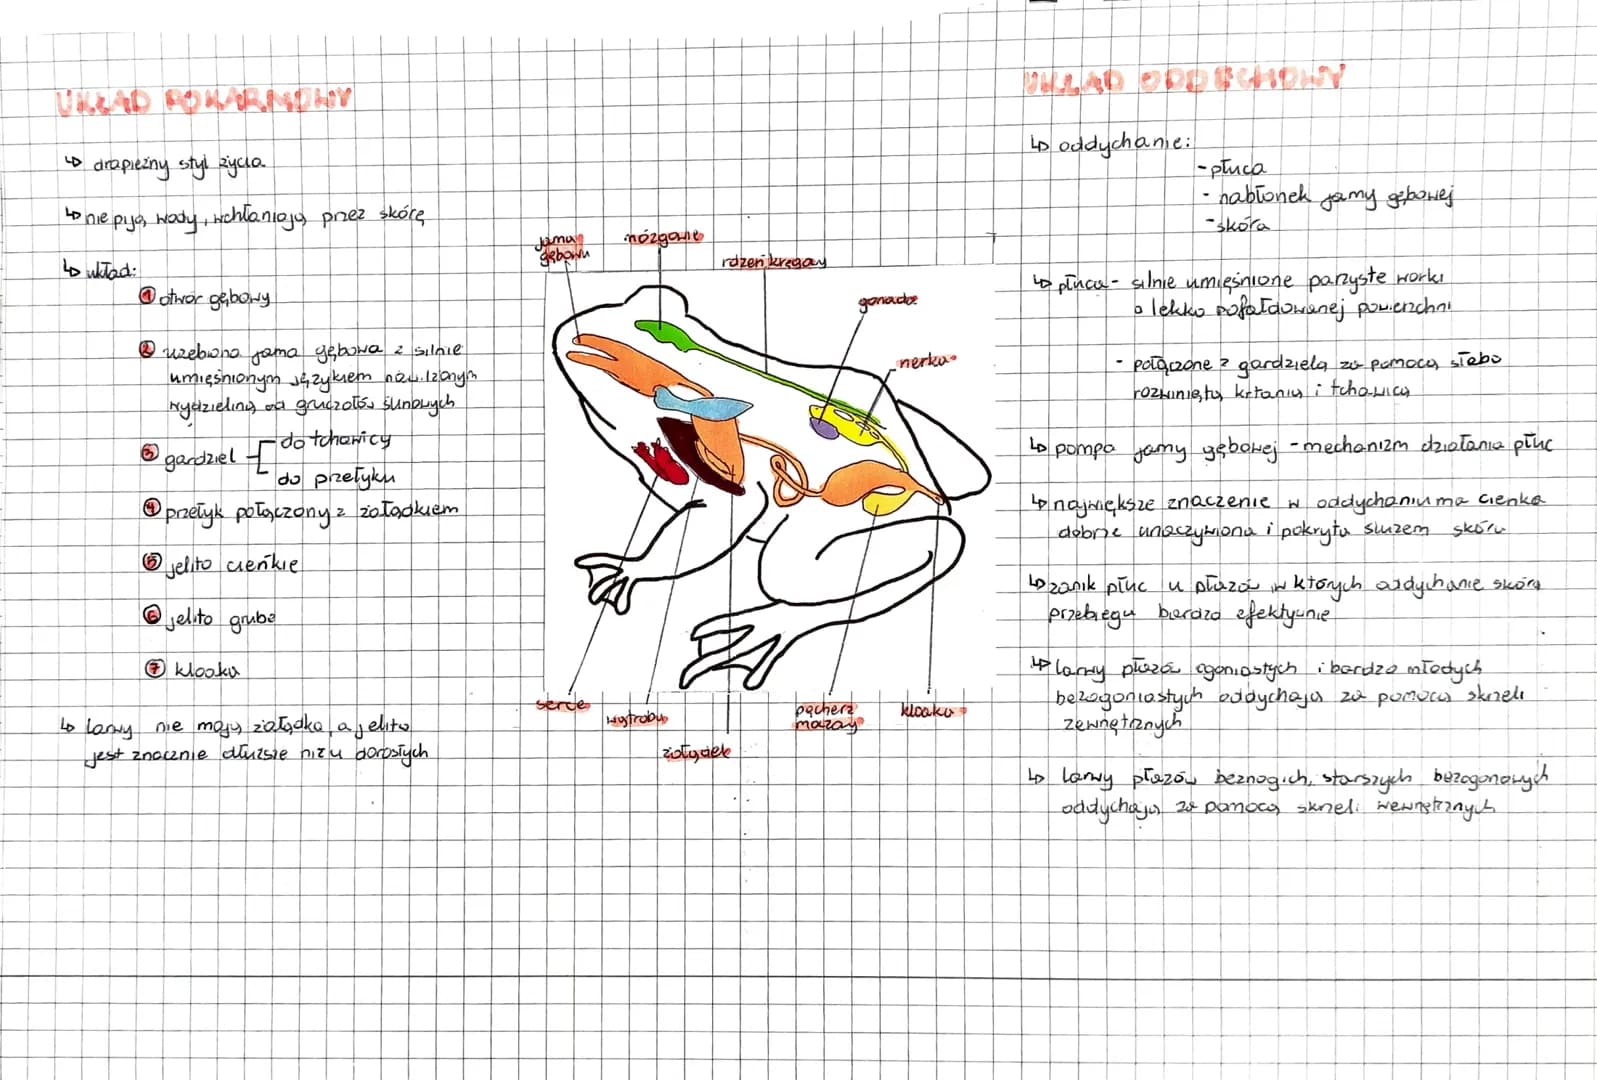 UKŁAD POKARMOWY
↳ drapieżny styl życia
↳ nie piją wody, wchłaniają przez skórę
↳ układ:
① otwór gębowy
② uzębiona jama gębowa z silnie
umięśnionym językiem nawilżonym
wydzieliną od gruczołów ślinowych
③ gardziel
do tchawicy
do przełyku
④ przełyk połączony z żołądkiem
⑤ jelito cieńkie
⑥ jelito grube
⑦ kloaka
↳ larwy nie mają żołądka, a jelito
jest znacznie dłuższe niż u dorosłych
jama
gębowa
mózgowie
rdzeń kręgowy
gonada
nerka
serce
wątroba
żołądek
pęcherz
moczowy
kloaka
UKŁAD ODDECHOWY
↳ oddychanie:
- płuca
- nabłonek jamy gębowej
- skóra
↳ płuca - silnie umięśnione parzyste worki
o lekko pofałdowanej powierzchni
- połączone z gardzielą za pomocą słabo
rozwiniętą krtanią i tchawicą
↳ pompa jamy gębowej - mechanizm działania płuc
↳ największe znaczenie w oddychaniu ma cienka
dobrze unaczyniona i pokryta śluzem skóra
↳ zanik płuc u płazów w których oddychanie skórą
przebiega bardzo efektywnie
↳ larwy płazów ogoniastych i bardzo młodych
bezogoniastych oddychają za pomocą skrzeli
zewnętrznych
↳ larwy płazów beznogich, starszych bezogonowych
oddychają za pomocą skrzeli wewnętrznych